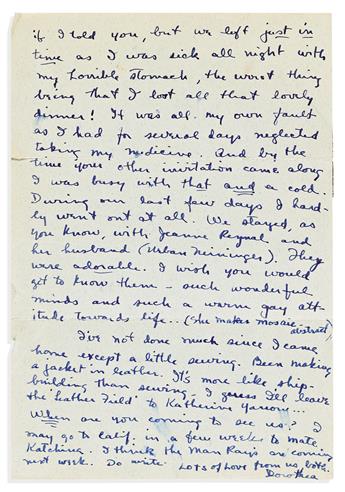 if I told you, but we left just in
time as I was sick all night with
my horrible stomach, the worst thing
being that I lost all that lovely
dinner! It was all my own fault
as I had for several days neglected
taking my medicine. And by the
time your other invitation came along
I was busy with that and a cold.
During our last few days I hard-
ly went out at all. We stayed, as
you know, with Jeanne Reynal and
her husband (Urban Neininger). They
were adorable. I wish you would
get to know them - such wonderful
minds and such a warm gay att-
itude towards life.. (She makes mosaic-
abstract)
I've not done much since I came
home except a little sewing. Been making
a jacket in leather. It's more like ship-
building than sewing. I guess I'll leave
the 'Leather Field' to Katherine Yarrow...
When are you coming to see us? I
may go to Calif. in a few weeks to mate
Katchina. I think the Man Rays are coming
next week. Do write. Lots of Love from us both.
Dorothea